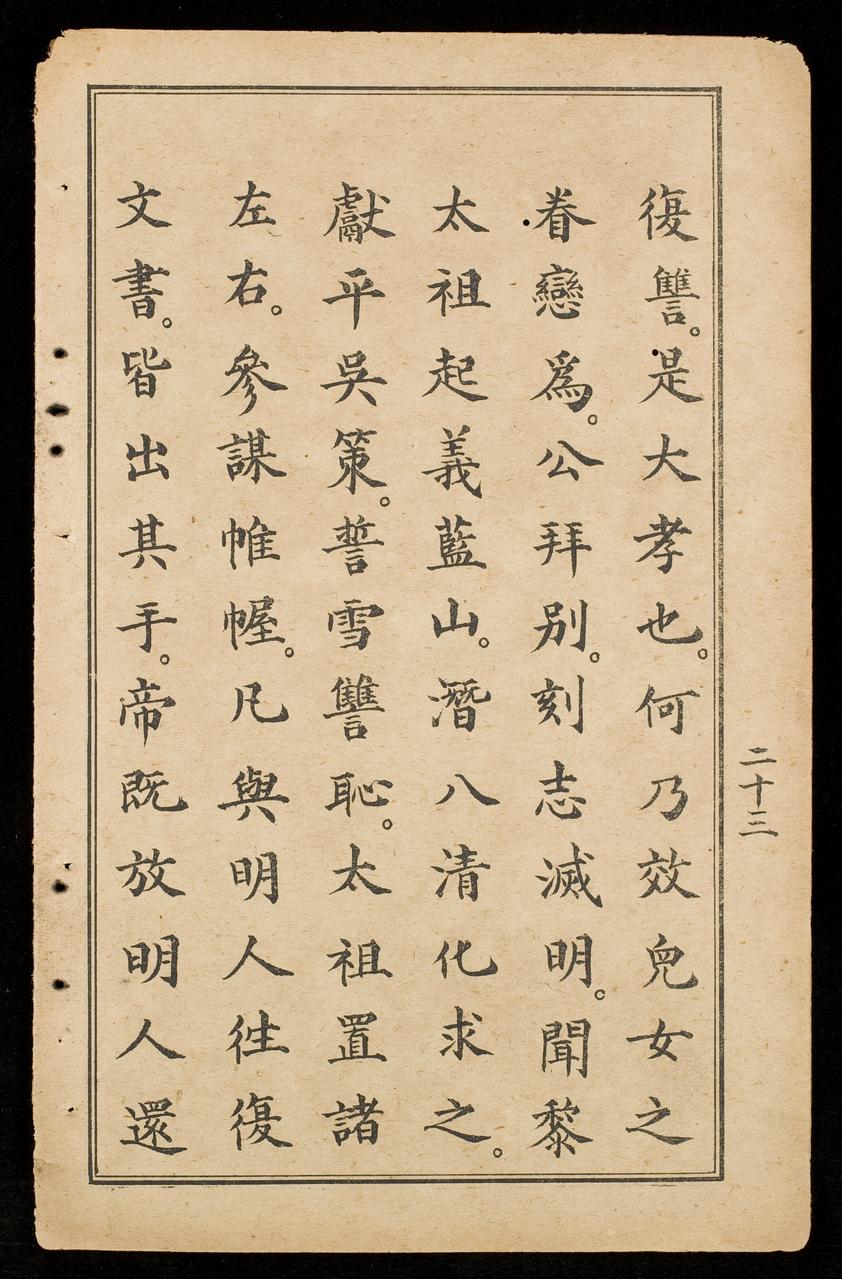 復讐。是大孝也。何乃效兒女之
眷戀爲。公拜別。刻志滅明。聞黎
太祖起義藍山。潛八清化求之。
獻平吳策。誓雪讐恥。太祖置諸
左右。參謀帷幄。凡與明人徃復
文書。皆出其手。帝既放明人還
二十三